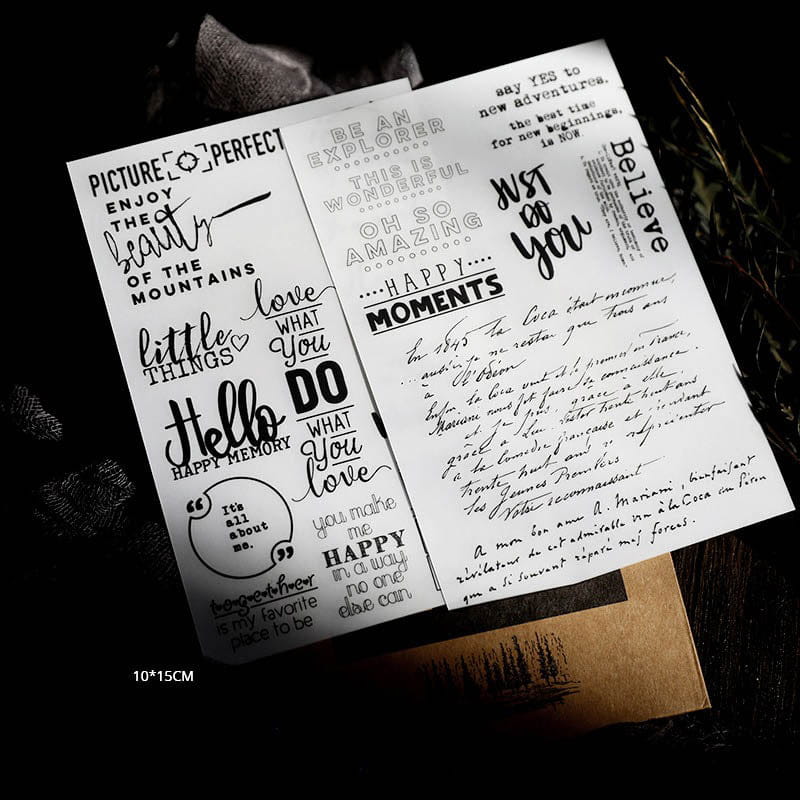 PICTURE PERFECT
ENJOY
THE
beauty
OF THE
MOUNTAINS
little
THINGS
love
WHAT
You
DO
WHAT
You
love
Hello
HAPPY MEMORY
“
It's
all
about
me.
”
you make
me
HAPPY
in a way
no one
else can
together
is my favorite
place to be
BE AN
EXPLORER
THIS IS
WONDERFUL
OH SO
AMAZING
HAPPY
MOMENTS
say YES to
new adventures.
the best time
for new beginnings,
is NOW.
JUST
DO
You
Believe
En 1845 la Coca était inconnue,
aussi je ne restai que trois ans
à l'Odéon
Enfin la Coca vint et le premier en France,
Mariani nous fit faire sa connaissance.
et je pus, grâce à elle,
grâce à Lui, rester trente huit ans
à la comédie française et cependant
trente huit ans se représenter
les Jeunes Premiers
Votre reconnaissant
A mon bon ami A. Mariani, bienfaisant
révélateur du cet admirable vin à la Coca du Pérou
qui a si souvent réparé mes forces.
10*15CM